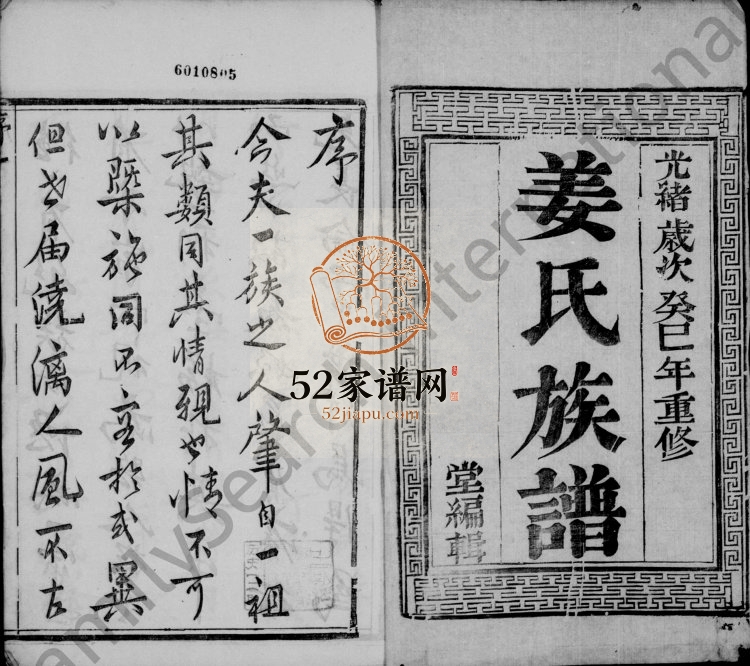 光緒歲次癸巳年重修
姜氏族譜
堂編輯
6010805
序
今夫一族之人肇自一祖
其類同其情親也情不可
以槩施同不容於或異
但世届澆漓人風不古
序
52家谱网
52jiapu.com
FamilySearch International